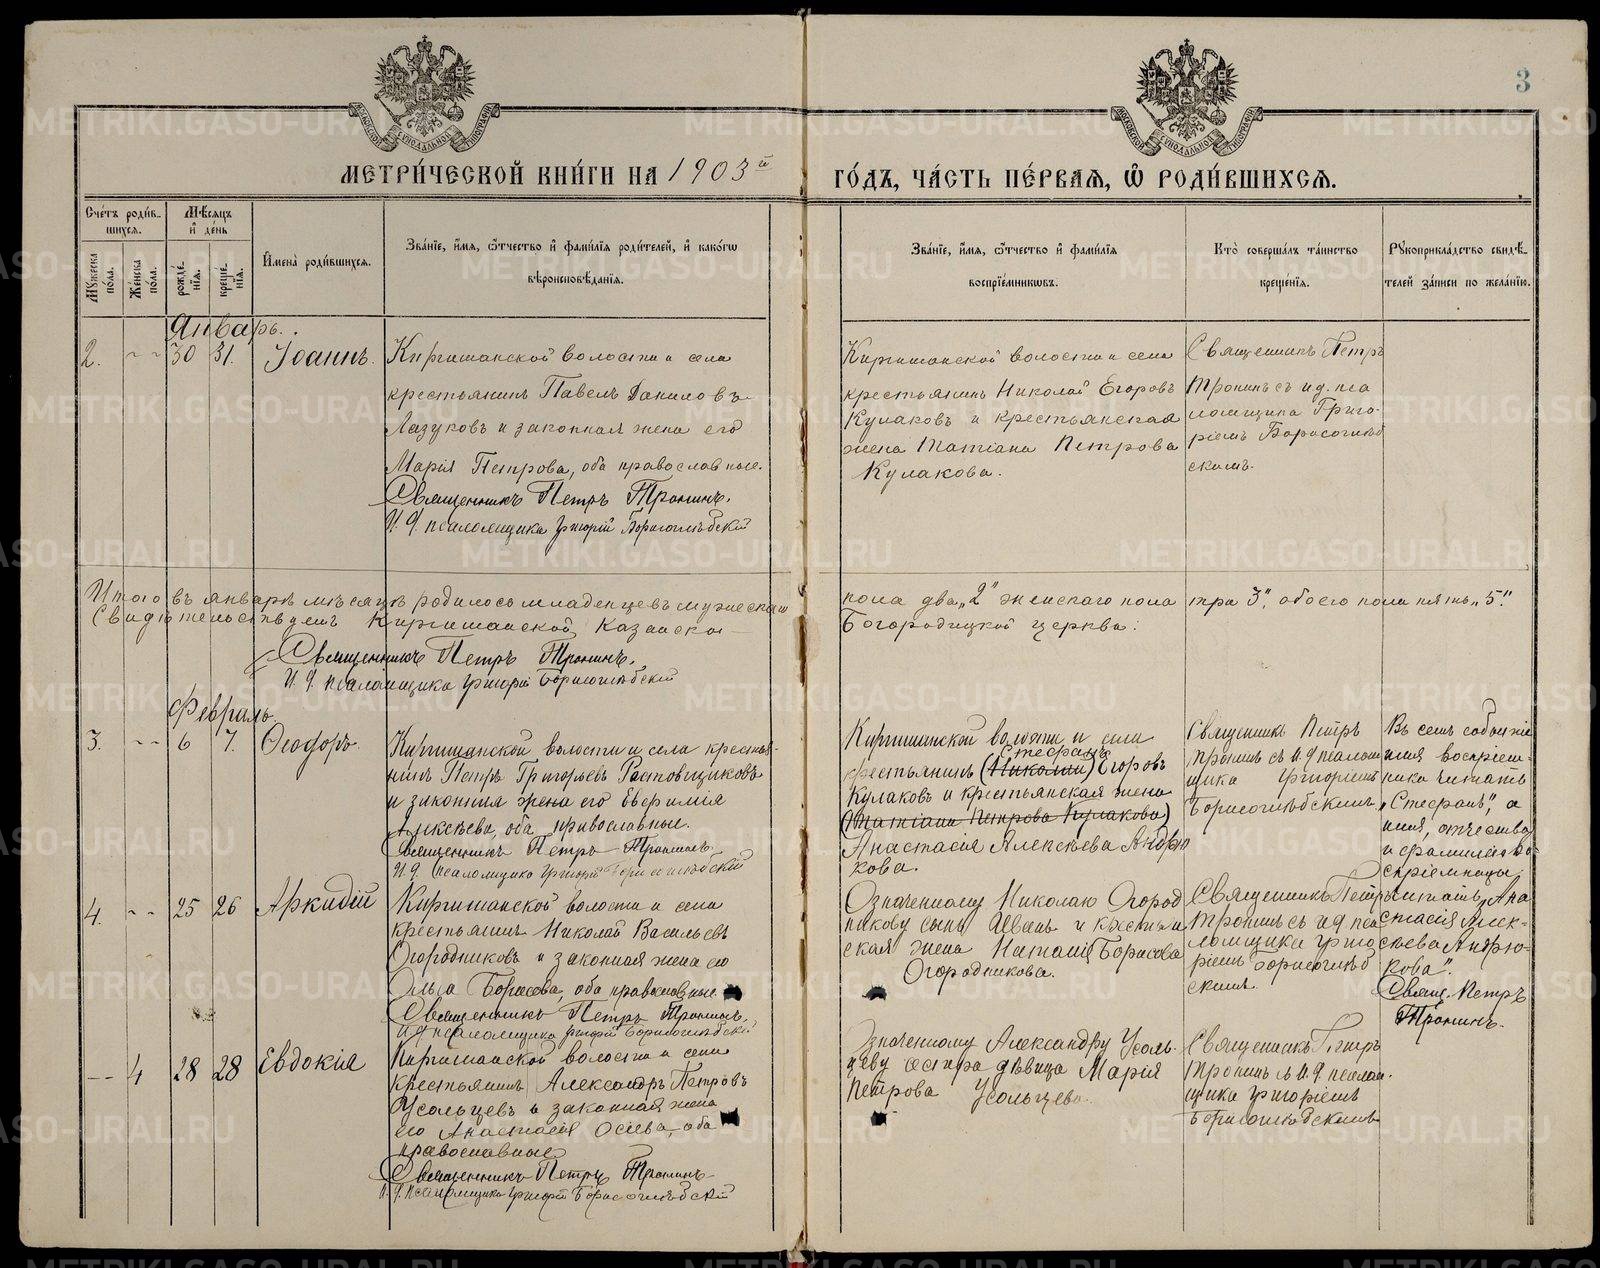 3
МОСКОВСКОЙ СѴНОДАЛЬНОЙ ТИПОГРАФІИ
МОСКОВСКОЙ СѴНОДАЛЬНОЙ ТИПОГРАФІИ
МЕТРИ́ЧЕСКОЙ КНИ́ГИ НА 1903й ГО́ДЪ, ЧА́СТЬ ПЕ́РВАѦ, Ѡ҆ РОДИ́ВШИХСѦ.
Сче́тъ роди́в-
шихсѧ.
Мѣ́сѧцъ
и҆ де́нь
Мꙋ́жеска
по́ла.
Же́нска
по́ла.
рожде́-
нїѧ.
креще́-
нїѧ.
И҆мена̀ роди́вшихсѧ.
Зва́нїе, и҆́мѧ, ѻ҆́тчество и҆ фами́лїѧ роди́телей, и҆ како́гѡ
вѣроисповѣ́данїѧ.
Зва́нїе, и҆́мѧ, ѻ҆́тчество и҆ фами́лїѧ
воспрїе́мникѡвъ.
Кто̀ соверша́лъ та́инство
креще́нїѧ.
Рꙋкоприкла́дство свидѣ́-
телей за́писи по жела́нїю.
Январь.
2. - - 30 31. Іоаннъ.
Киргишанской волости и села
крестьянинъ Павелъ Даниловъ
Лазуковъ и законная жена его
Марія Петрова, оба православные.
Священникъ Петръ Тронинъ.
И. д. псаломщика Григорій Борисоглѣбскій
Киргишанской волости и села
крестьянинъ Николай Егоровъ
Кулаковъ и крестьянская
жена Татіана Петрова
Кулакова.
Священникъ Петръ
Тронинъ съ и.д. пса
ломщика Григо-
ріемъ Борисоглѣб
скимъ.
Итого въ январѣ мѣсяцѣ родилось младенцевъ мужескаго пола два „2" женскаго пола три 3", обоего пола пять „5".
Свидѣтельствуемъ Киргишанской Казанско- Богородицкой церкви:
Священникъ Петръ Тронинъ.
И. д. псаломщика Григорій Борисоглѣбскій
Февраль.
3. - - 6 7. Ѳеодоръ.
Киргишанской волости и села крестья-
нинъ Петръ Григорьевъ Ростовщиковъ
и законная жена его Евфимія
Алексѣева, оба православные.
Священникъ Петръ Тронинъ.
И. д. псаломщика Григорій Борисоглѣбскій
Киргишанской волости и села
Стефанъ
крестьянинъ (Николай) Егоровъ
Кулаковъ и крестьянская жена
(Татіана Петрова Кулакова)
Анастасія Алексѣева Андрю
кова.
Священникъ Петръ
Тронинъ съ и.д псалом
щика Григоріемъ
Борисоглѣбскимъ
Въ семъ событіи
имя воспріем-
ника читать
„Стефанъ", а
имя, отчество
и фамилію во-
спріемницы
читать „Ана
стасія Алек-
сѣева Андрю-
кова".
Свящ. Петръ
Тронинъ.
4. - - 25 26 Аркадій
Киргишанской волости и села
крестьянинъ Николай Васильевъ
Огородниковъ и законная жена его
Ольга Борисова, оба православные.
Священникъ Петръ Тронинъ.
И.д псаломщика Григорій Борисоглѣбскій
Означенному Николаю Огород
никову сынъ Иванъ и крестьян
ская жена Наталія Борисова
Огородникова.
Священникъ Петръ
Тронинъ съ и.д пса
ломщика Григо
ріемъ Борисоглѣб
скимъ.
-- 4 28 28 Евдокія
Киргишанской волости и села
крестьянинъ Александръ Петровъ
Усольцевъ и законная жена
его Анастасія Осіева, оба
православные
Священникъ Петръ Тронинъ
И. д. псаломщика Григорій Борисоглѣбскій
Означенному Александру Усоль-
цеву сестра дѣвица Марія
Петрова Усольцева.
Священникъ Петръ
Тронинъ съ и.д. псалом-
щика Григоріемъ
Борисоглѣбскимъ